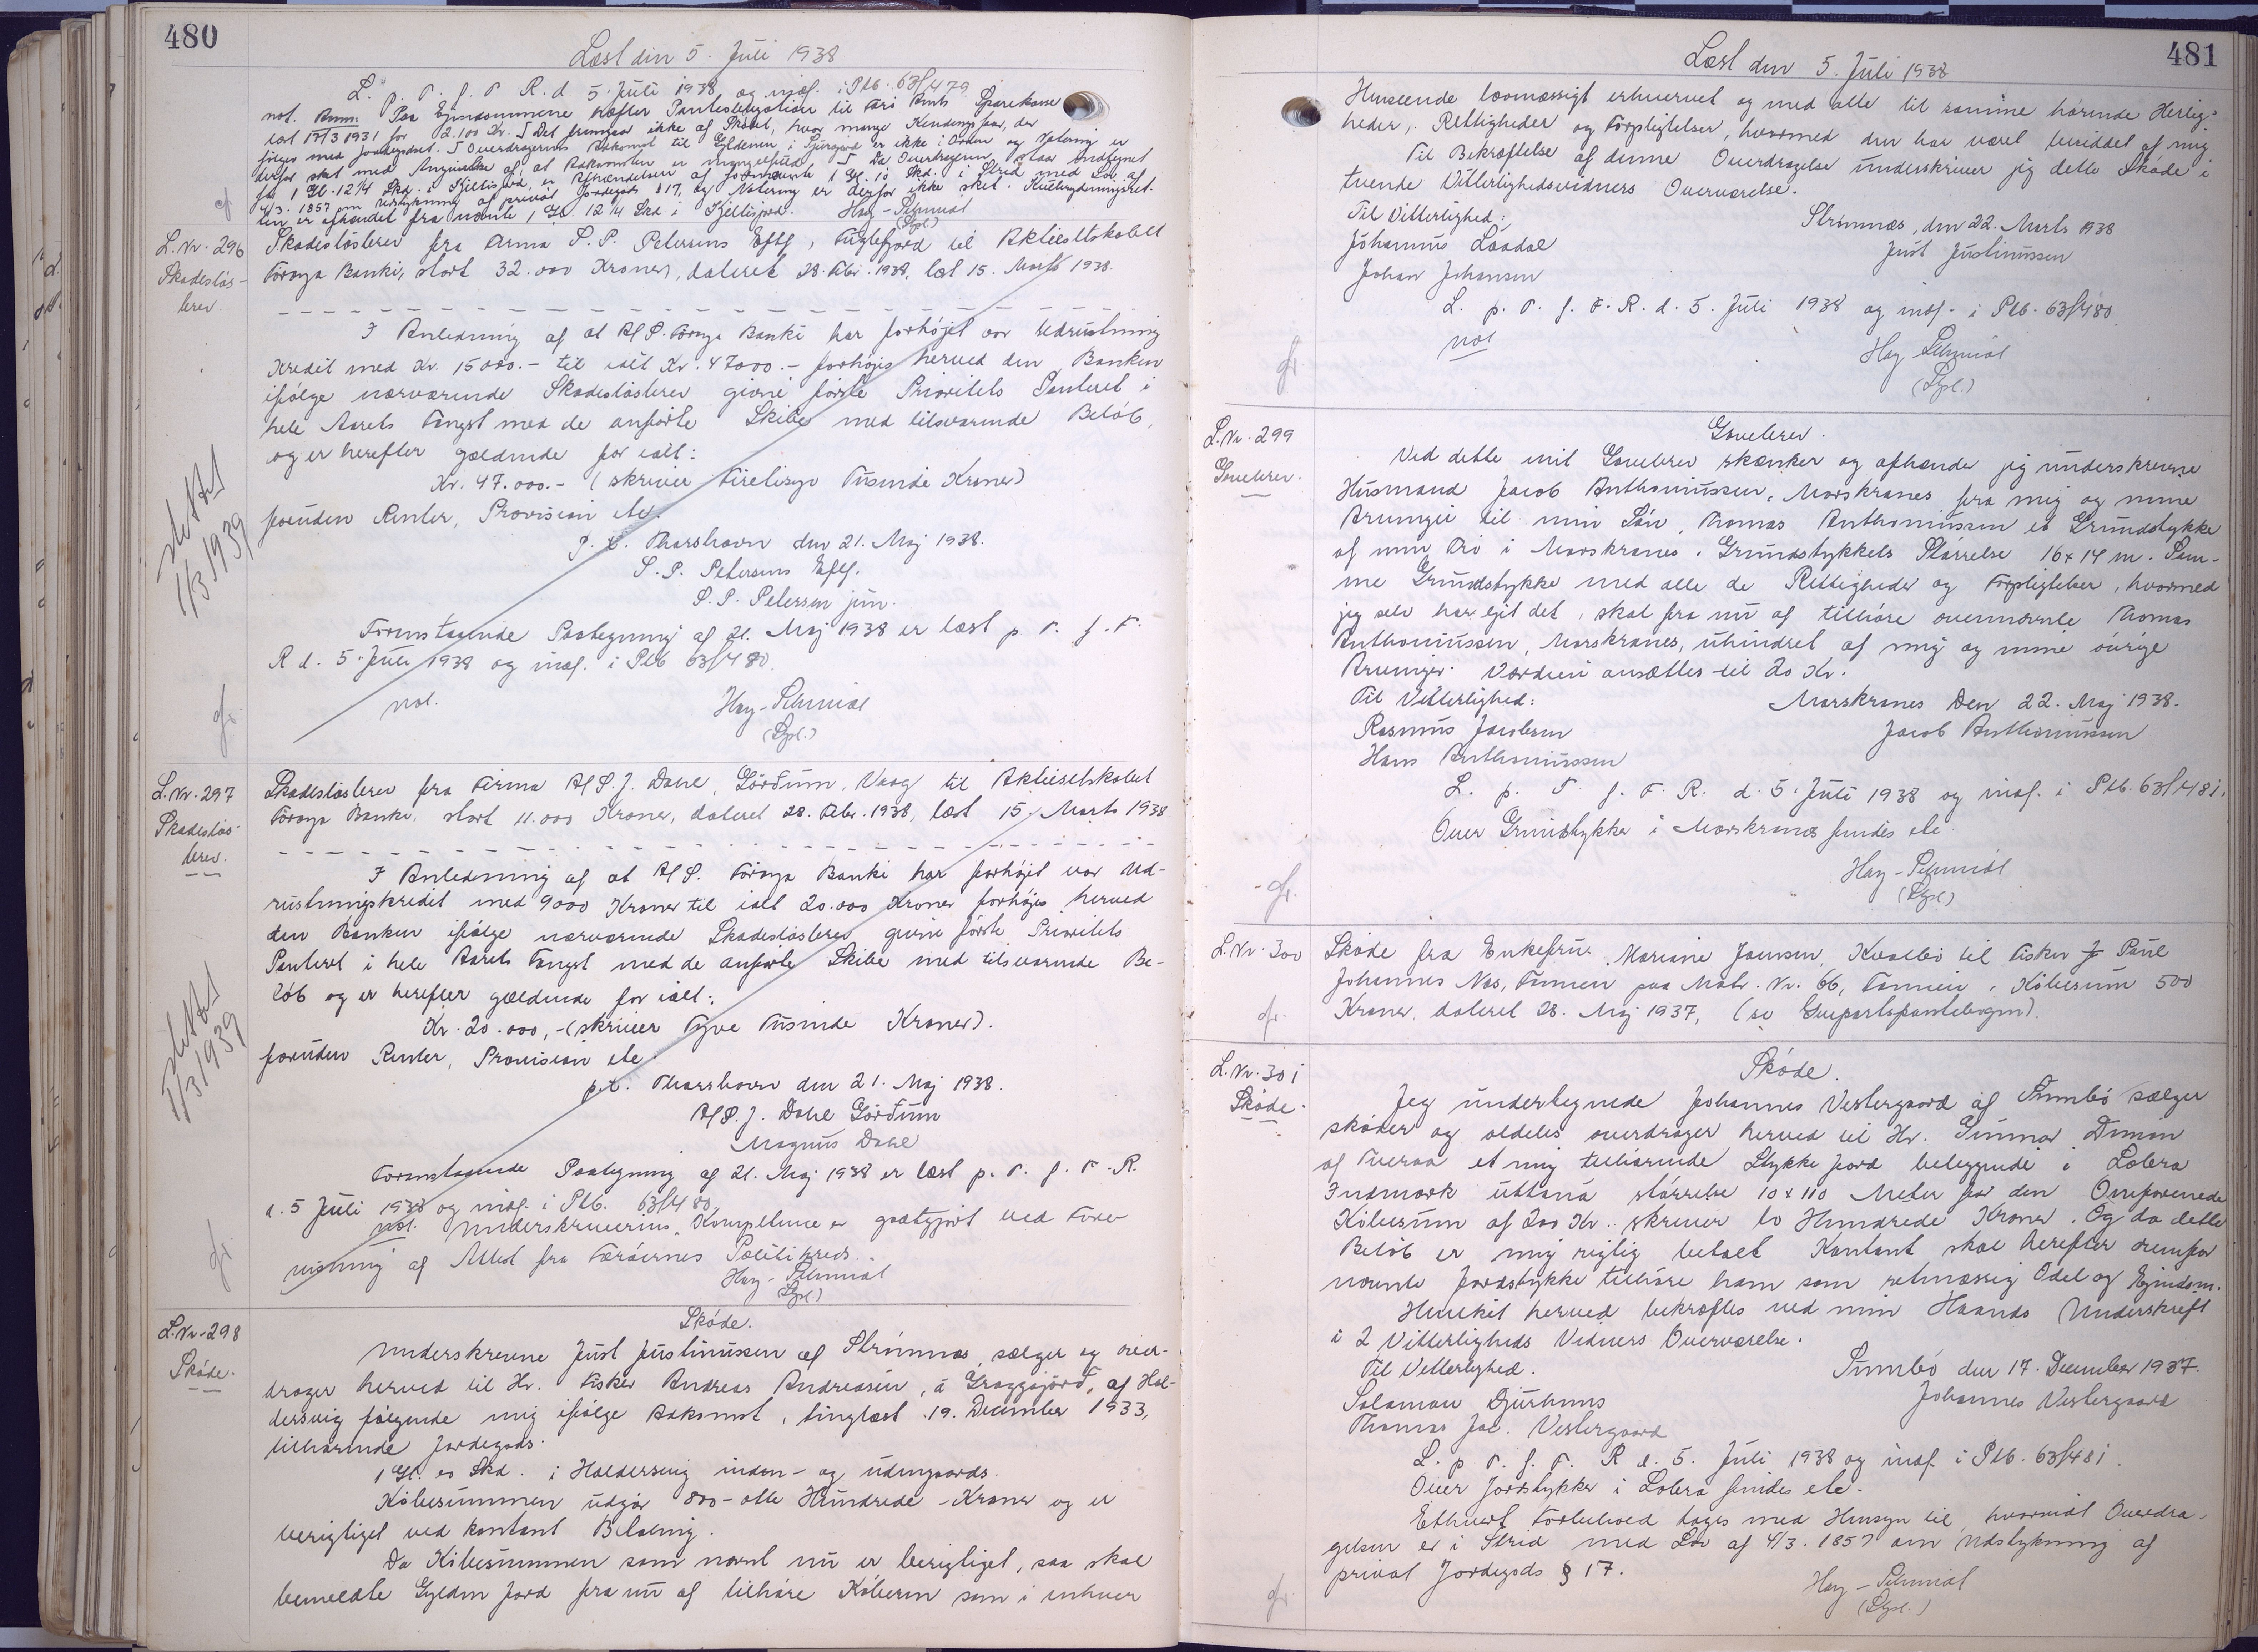 480
Læst den 5. Juli 1938
L. p. T. f. F. R. d. 5. Juli 1938 og indf. i Ptb. 63f/479
not. Anm. Paa Ejendommene hæfter Panteobligation til Færø Amts Sparekasse
læst 17/3 1931 for 2.100 Kr. Det fremgaar ikke af Skødet, hvor mange Kendings faar, der
følger med Jordegodset. Overdragerens Adkomst til Gyldenen i er ikke i Orden og Notering er
derfor sket med Angivelse af, at Adkomsten er mangelfuld. Da Overdrageren
fra 1 Gl. 12 1/4 Skd. i er Afhændelsen af 1 Gl. 10 Skd. i Strid med Lov af
4/3. 1857 om Udstykning af privat Jordegods § 17, og Notering er derfor ikke sket.
ten er afhændet fra nævnte 1 Gl. 12 1/4 Skd i
Hoy-Schmidt
(Dpl.)
L. Nr. 296
Skadesløs-
brev.
Skadesløsbrev fra Firma S. P. Petersens Eftf., Fuglefjord til Aktieselskabet
Føroya Banki, stort 32.000 Kroner, dateret 28. Febr. 1938, læst 15. Marts 1938.
I Anledning af at A/S. Føroya Banki har forhøjet vor Udrustning
Kredit med Kr. 15000.- til ialt Kr. 47000.- forhøjes herved den Banken
ifølge nærværende Skadesløsbrev givne første Prioritets Panteret i
hele Aarets Fangst med de anførte Skibe med tilsvarende Beløb,
og er herefter gældende for ialt:
Kr. 47.000.- (skriver Firetisyv Tusinde Kroner)
foruden Renter, Provision etc.
p. t. Thorshavn den 21. Maj 1938.
S. P. Petersens Eftf.
S. P. Petersen jun.
Foranstaaende Paategning af 21. Maj 1938 er læst p. T. f. F.
R d. 5. Juli 1938 og indf. i Ptb 63f/480.
not.
Hoy-Schmidt
(Dpl.)
slettet
1/3 1939
L. Nr. 297
Skadesløs-
brev.
Skadesløsbrev fra Firma A/S. J. Dahl, Görðum, Vaag til Aktieselskabet
Føroya Banki, stort 11.000 Kroner, dateret 28. Febr. 1938, læst 15. Marts 1938
I Anledning af at A/S. Føroya Banki har forhøjet vor Ud-
rustningskredit med 9000 Kroner til ialt 20.000 Kroner forhøjes herved
den Banken ifølge nærværende Skadesløsbrev givne første Prioritets
Panteret i hele Aarets Fangst med de anførte Skibe med tilsvarende Be-
løb og er herefter gældende for ialt:
Kr. 20.000,- (skriver Tyve Tusinde Kroner).
foruden Renter, Provision etc.
p.t. Thorshavn den 21. Maj 1938.
A/S. J. Dahl Görðum
Magnus Dahl
Foranstaaende Paategning af 21. Maj 1938 er læst p. T. f. F. R.
d. 5 Juli 1938 og indf. i Ptb. 63f/480.
not. Underskriverens Kompetence er godtgjort ved Fore-
visning af Attest fra Færøernes Politikreds.
Hoy-Schmidt
(Dpl.)
slettet
1/3 1939
L. Nr. 298
Skøde.
Skøde.
Underskrevne Just Justinussen af Strømnæs, sælger og over-
drager herved til Hr. Fisker Andreas Andreasen, á Gröggjörð, af Hal-
dersvig følgende mig ifølge Adkomst, tinglæst 19. December 1933,
tilhørende Jordegods:
1 Gl. 20 Skd. i Haldersvig inden- og udengaards.
Købesummen udgør 800- otte Hundrede - Kroner og er
berigtiget ved kontant Betaling.
Da Købesummen som nævnt nu er berigtiget, saa skal
bemeldte Gylden Jord fra nu af tilhøre Køberen som i enhver
481
Læst den 5. Juli 1938
Henseende lovmæssigt erhvervet og med alle til samme hørende Herlig-
heder, Rettigheder og Forpligtelser, hvormed den har været besiddet af mig.
Til Bekræftelse af denne Overdragelse underskriver jeg dette Skøde i
tvende Vitterlighedsvidners Overværelse.
Til Vitterlighed:
Strømnæs, den 22. Marts 1938
Johannus Laadal
Just Justinussen
Johan Johansen
L. p. T. f. F. R. d. 5. Juli 1938 og indf. i Ptb. 63f/480
not
Hoy Schmidt
(Dpl.)
L. Nr. 299
Gavebrev.
Gavebrev.
Ved dette mit Gavebrev skænker og afhænder jeg underskrevne
Husmand Jacob Anthoniussen, Morskranes fra mig og mine
Arvinger til min Søn, Thomas Anthoniussen et Grundstykke
af min Trø i Morskranes. Grundstykkets Størrelse 16 x 14 m. Sam-
me Grundstykke med alle de Rettigheder og Forpligtelser, hvormed
jeg selv har ejet det, skal fra nu af tilhøre ovennævnte Thomas
Anthoniussen, Morskranes, uhindret af mig og mine øvrige
Arvinger. Værdien ansættes til 20 Kr.
Til Vitterlighed:
Morskranes Den 22. Maj 1938.
Rasmus Jacobsen
Jacob Anthoniussen
Hans Anthoniussen
L. p. T. f. F. R. d. 5. Juli 1938 og indf. i Ptb. 63f/481.
Over Grundstykker i Morskranes findes etc.
Hoy-Schmidt
(Dpl.)
L. Nr. 300
Skøde fra Enkefru Mariane Joensen, Kvalbø til Fisker J Paul
Johannes Næs, Famien paa Matr. Nr. 66, Famien, Købesum 500
Kroner, dateret 28. Maj 1937, (se Gueparts pantebogen).
L. Nr. 301
Skøde.
Skøde.
Jeg undertegnede Johannes Vestergaard af Sumbø sælger
skøder og aldeles overdrager herved til Hr. Gunnar Dimon
af Tveraa et mig tilhørende Stykke Jord beliggende i Lobra
Indmark uttaná størrelse 10 x 110 Meter for den Omforenede
Købesum af 200 Kr. skriver to Hundrede Kroner. Og da dette
Beløb er mig rigtig betalt Kontant skal herefter
nævnte Jordstykke tilhøre ham som retmæssig Odel og Ejendom.
Hvilket herved bekræftes ved min Haands Underskrift
i 2 Vitterligheds Vidners Overværelse.
Til Vitterlighed.
Sumbø den 17. December 1937.
Salomon Djurhuus
Johannes Vestergaard
Thomas Jac. Vestergaard
L. p. T. f. F. R d. 5. Juli 1938 og indf. i Ptb. 63f/481.
Over Jordstykker i Lobra findes etc.
Ethvert Forbehold tages med Hensyn til, hvorvidt Overdra-
gelsen er i Strid med Lov af 4/3. 1857 om Udstykning af
privat Jordegods § 17.
Hoy-Schmidt
(Dpl.)